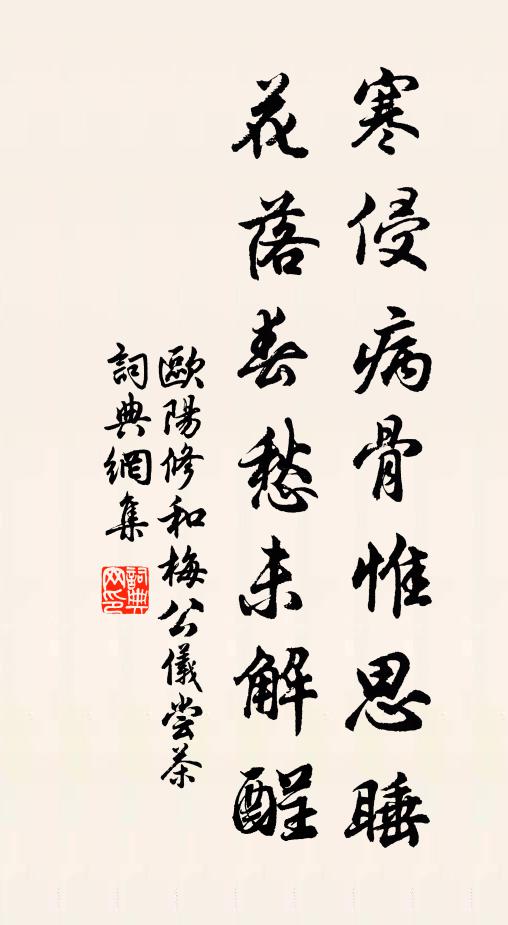 寒侵病骨惟思睡
花落春愁未解酲
歐陽修和梅公儀嘗茶
詞典網集
詞典
网印